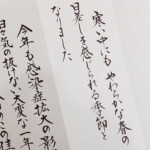 寒い中にも やわらかな春の
日差しを感じられる季節と
なりました
今年も感染症拡大の影
気の抜けない大変な一年